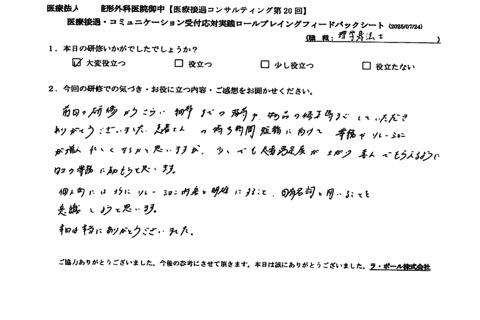 医療法人 形外科医院御中【医療接遇コンサルティング第20回】
医療接遇・コミュニケーション受付応対実践ロールプレイングフィードバックシート (2025/07/24)
(職種: 理学療法士 )
1. 本日の研修いかがでしたでしょうか?
☑ 大変役立つ □ 役立つ □ 少し役立つ □ 役立たない
2. 今回の研修での気づき・お役に立つ内容・ご感想をお聞かせください。
前回の研修から
ありがとうございました。患者さんの待ち時間短縮に向けて 業務やリレーション
が増えてくるかと思いますが、少しでも患者満足度が上がり喜んでもらえるように
日々の業務に励もうと思います。
個人的には特にリレーション内容を明確にすること、固有名詞を用いることを
意識しようと思います。
本日は本当にありがとうございました。
ご協力ありがとうございました。今後の参考にさせて頂きます。本日は誠にありがとうございます。 ラ・ポール株式会社